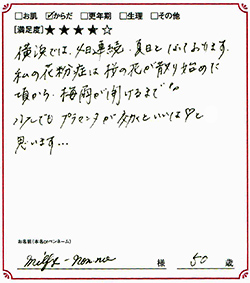 □お肌 ☑からだ □更年期 □生理 □その他
[満足度]★★★★☆
横浜では、4日連続、夏日となっております。
私の花粉症は桜の花が散り始めた
頃から、梅雨が開けるまで
プラセンタが効くといいな♡と
思います…
お名前(本名orペンネーム)
様 50 歳